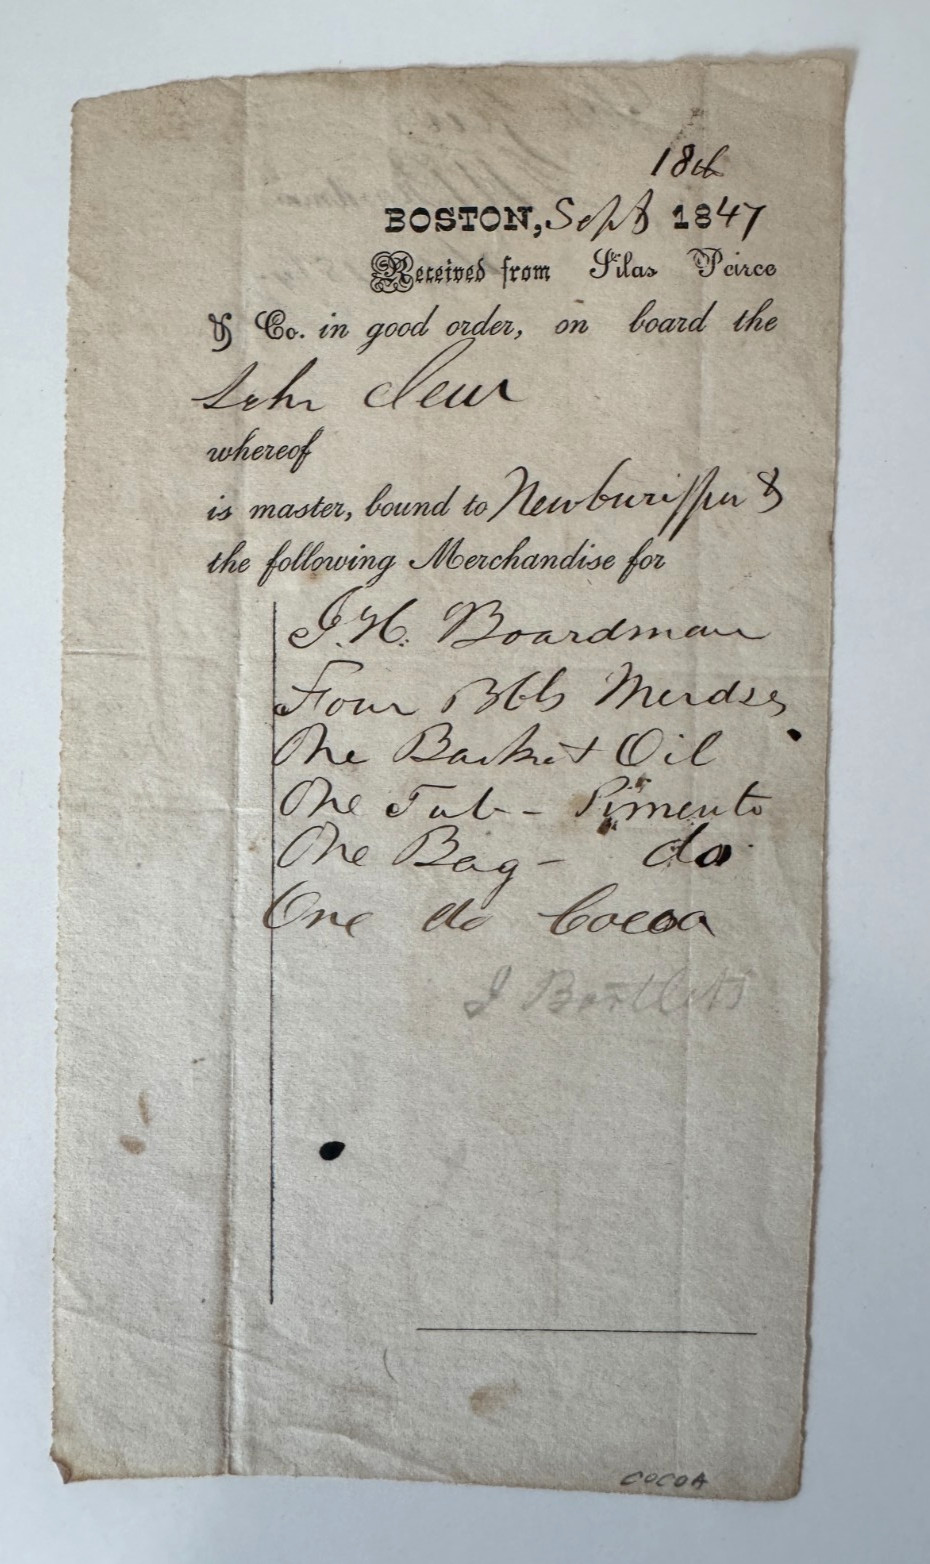 18th
BOSTON, Sept 1847
Received from Silas Peirce
& Co. in good order, on board the
Schr
whereof
is master, bound to Newburyport
the following Merchandise for
J. H. Boardman
Four Bbls Merdse
One Basket Oil
One Tub - Pimento
One Bag - do
One do Cocoa
J Bartlett
COCOA